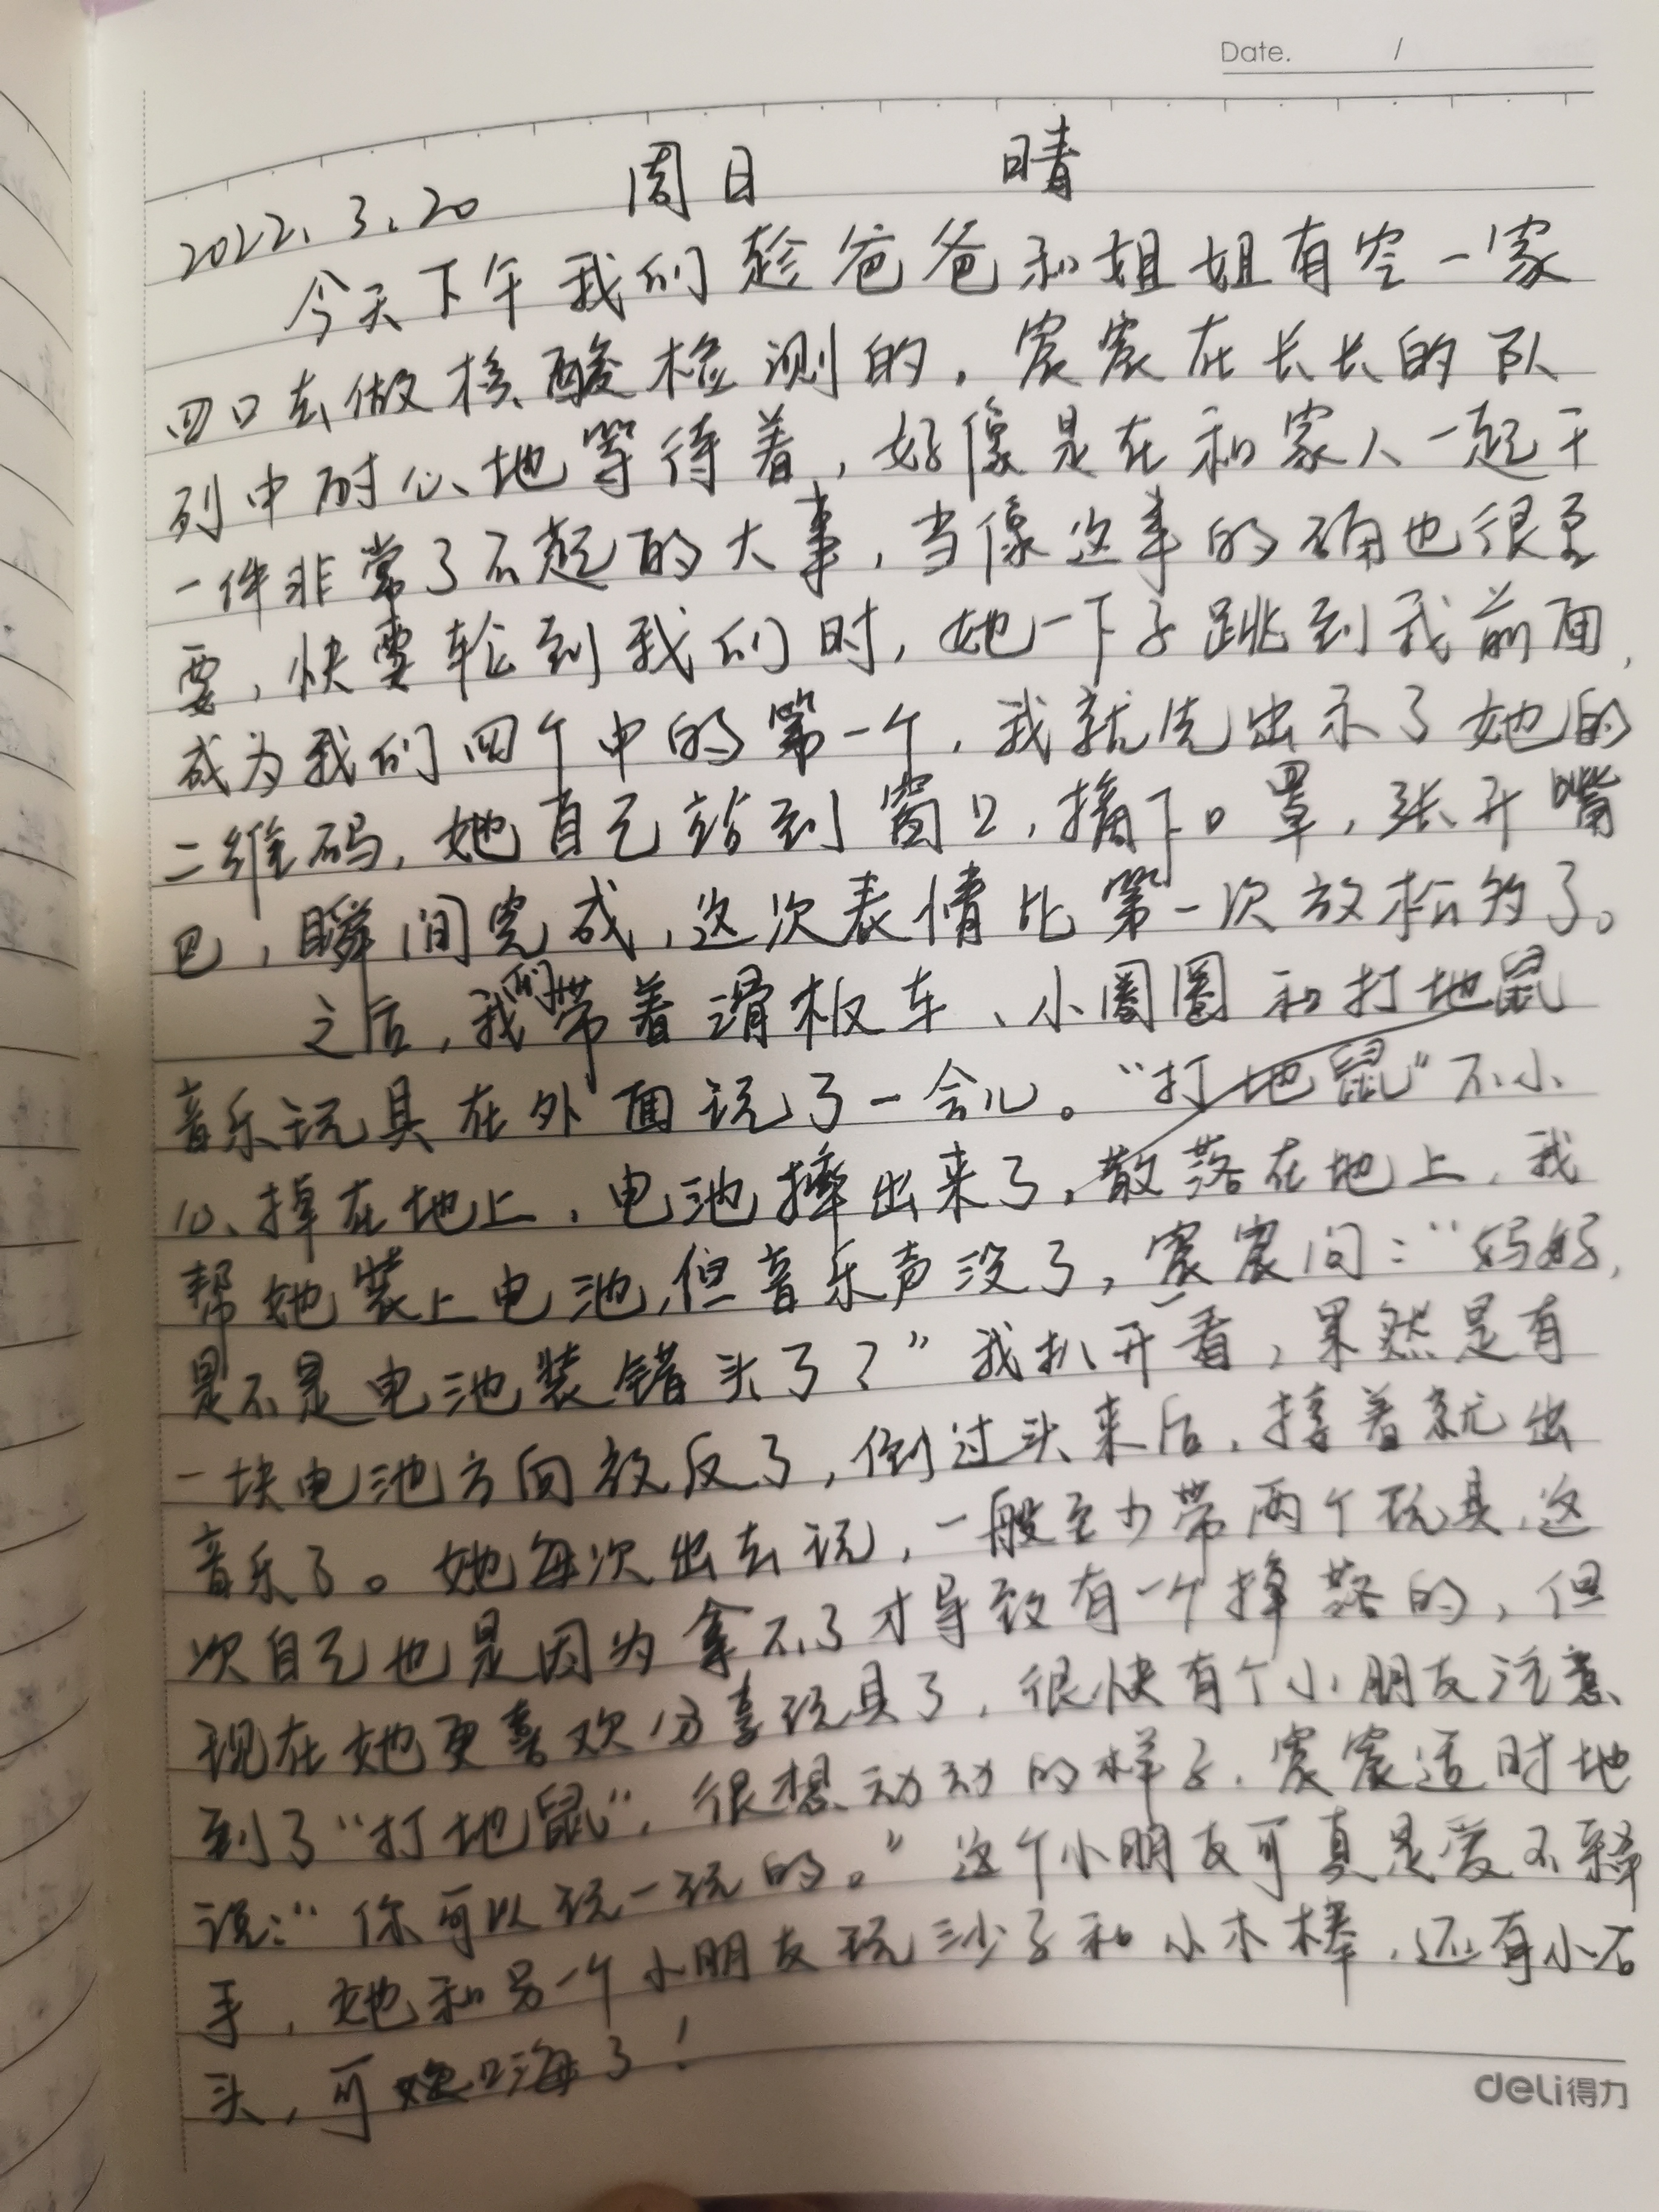 Date. /
2022.3.20 周日 晴
今天下午我们趁爸爸和姐姐有空一家
四口去做核酸检测的，宸宸在长长的队
列中耐心地等待着，好像是在和家人一起干
一件非常了不起的大事，当像这事的确也很重
要，快要轮到我们时，她一下子跳到我前面，
成为我们四个中的第一个，我就先出示了她的
二维码，她自己站到窗口，摘下口罩，张开嘴
巴，瞬间完成，这次表情比第一次放松的了。
之后，我们带着滑板车、小圈圈和打地鼠
音乐玩具在外面玩了一会儿。“打地鼠”不小
心掉在地上，电池摔出来了，散落在地上，我
帮她装上电池，但音乐声没了，宸宸问：“妈妈，
是不是电池装错头了？”我扒开一看，果然是有
一块电池方向放反了，倒过头来后，接着就出
音乐了。她每次出去玩，一般至少带两个玩具，这
次自己也是因为拿不了才导致有一个掉落的，但
现在她更喜欢分享玩具了，很快有个小朋友注意
到了“打地鼠”，很想动动的样子，宸宸适时地
说：“你可以玩一玩的。”这个小朋友可真是爱不释
手，她和另一个小朋友玩沙子和小木棒，还有小石
头，可嗨了！
deli得力